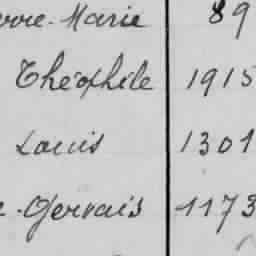 Marie 89
Théophile 1915
Louis 1301
Gervais 1173